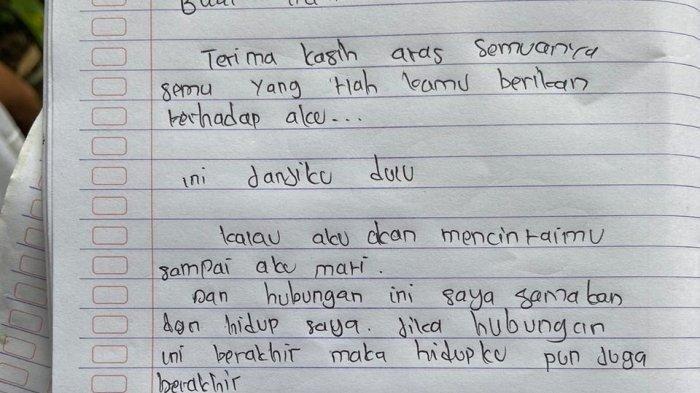 Terima kasih atas semuanya
semu yang tlah kamu berikan
terhadap aku...
ini janjiku dulu
kalau aku akan mencintaimu
sampai aku mati.
Dan hubungan ini saya samakan
dgn hidup saya. Jika hubungan
ini berakhir maka hidupku pun juga
berakhir